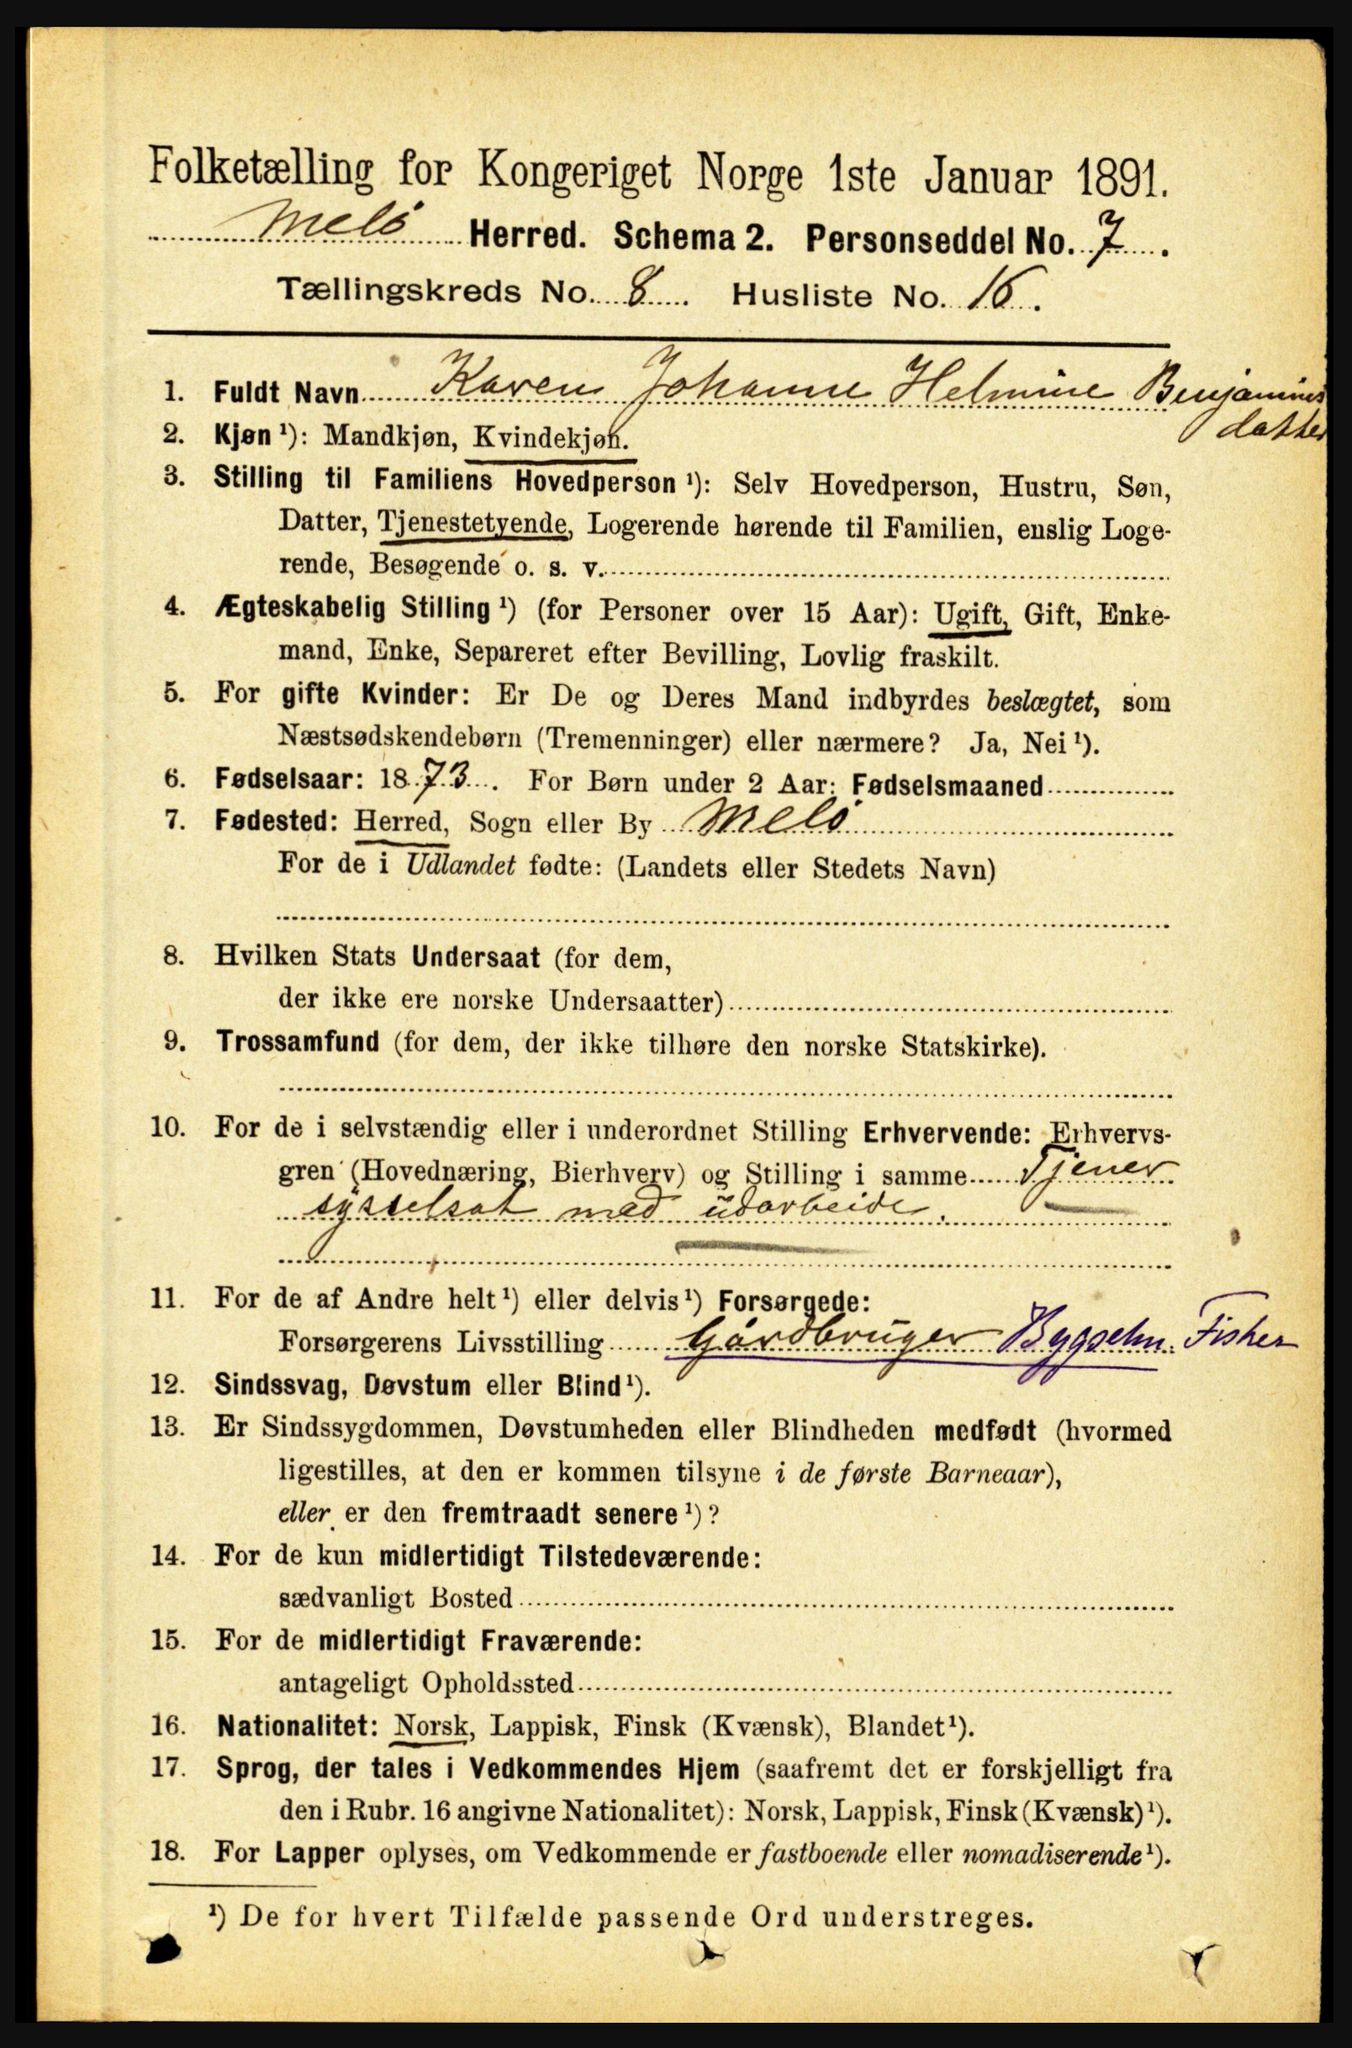 Folketælling for Kongeriget Norge 1ste Januar 1891.
Melö Herred. Schema 2. Personseddel No. 7.
Tællingskreds No. 8. Husliste No. 16.
1. Fuldt Navn Karen Johanne Helmine Benjamins
datter
2. Kjøn ¹): Mandkjøn, Kvindekjøn.
3. Stilling til Familiens Hovedperson ¹): Selv Hovedperson, Hustru, Søn,
Datter, Tjenestetyende, Logerende hørende til Familien, enslig Loge-
rende, Besøgende o. s. v.
4. Ægteskabelig Stilling ¹) (for Personer over 15 Aar): Ugift, Gift, Enke-
mand, Enke, Separeret efter Bevilling, Lovlig fraskilt.
5. For gifte Kvinder: Er De og Deres Mand indbyrdes beslægtet, som
Næstsødskendebørn (Tremenninger) eller nærmere? Ja, Nei ¹).
6. Fødselsaar: 1873. For Børn under 2 Aar: Fødselsmaaned
7. Fødested: Herred, Sogn eller By Melö
For de i Udlandet fødte: (Landets eller Stedets Navn)
8. Hvilken Stats Undersaat (for dem,
der ikke ere norske Undersaatter)
9. Trossamfund (for dem, der ikke tilhøre den norske Statskirke).
10. For de i selvstændig eller i underordnet Stilling Erhvervende: Erhvervs-
gren (Hovednæring, Bierhverv) og Stilling i samme Tjener
sysselsat med udarbeide.
11. For de af Andre helt ¹) eller delvis ¹) Forsørgede:
Forsørgerens Livsstilling Gårdbruger Bygselm. Fisker
12. Sindssvag, Døvstum eller Blind ¹).
13. Er Sindssygdommen, Døvstumheden eller Blindheden medfødt (hvormed
ligestilles, at den er kommen tilsyne i de første Barneaar),
eller er den fremtraadt senere ¹)?
14. For de kun midlertidigt Tilstedeværende:
sædvanligt Bosted
15. For de midlertidigt Fraværende:
antageligt Opholdssted
16. Nationalitet: Norsk, Lappisk, Finsk (Kvænsk), Blandet ¹).
17. Sprog, der tales i Vedkommendes Hjem (saafremt det er forskjelligt fra
den i Rubr. 16 angivne Nationalitet): Norsk, Lappisk, Finsk (Kvænsk) ¹).
18. For Lapper oplyses, om Vedkommende er fastboende eller nomadiserende ¹).
¹) De for hvert Tilfælde passende Ord understreges.